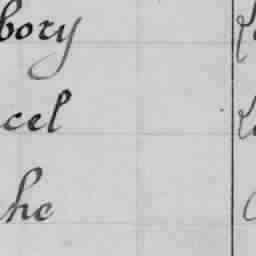 bory
cel
he